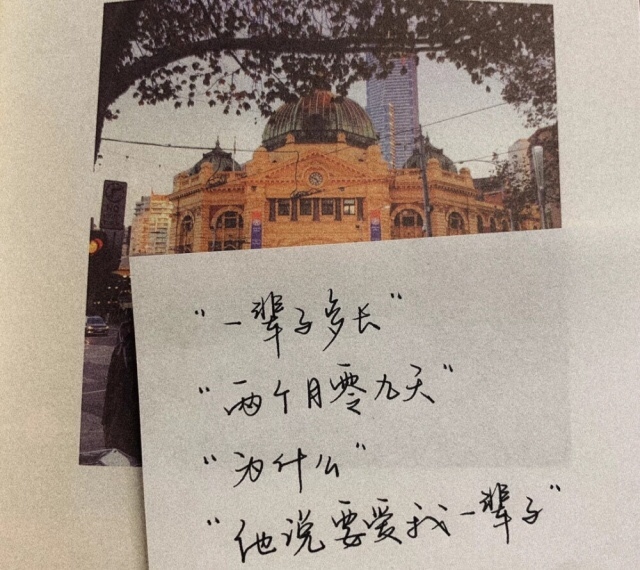 "一辈子多长"
"两个月零九天"
"为什么"
"他说要爱我一辈子"